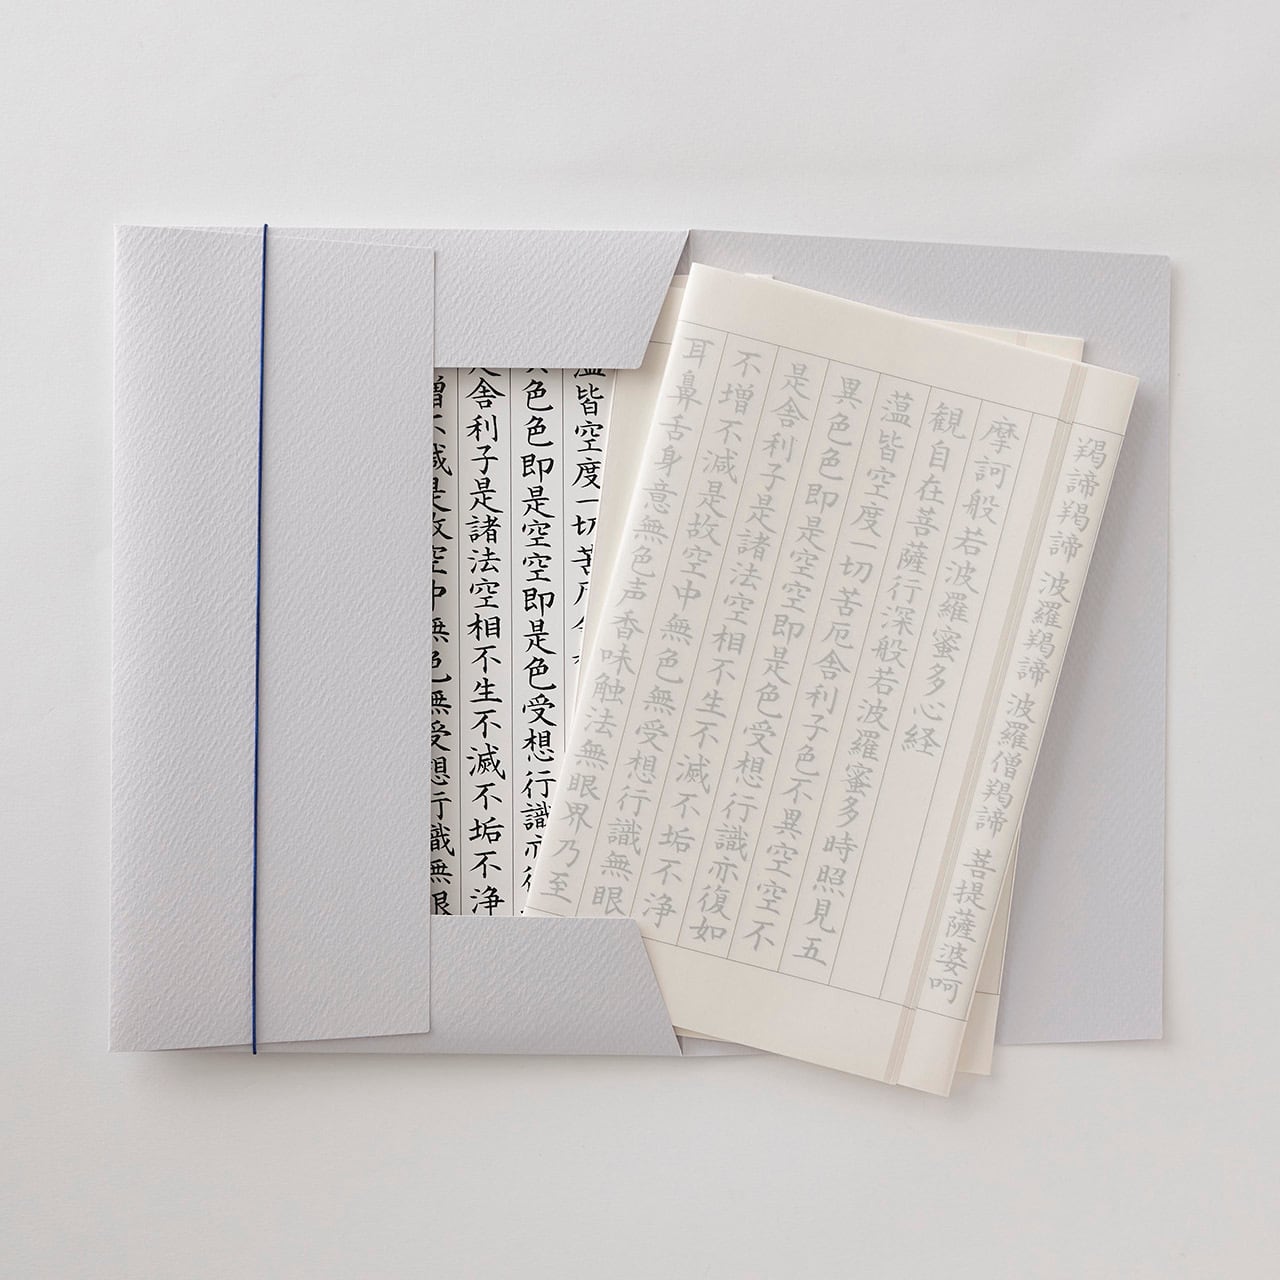 羯諦羯諦 波羅羯諦 波羅僧羯諦 菩提薩婆呵
摩訶般若波羅蜜多心経
観自在菩薩行深般若波羅蜜多時照見五
薀皆空度一切苦厄舎利子色不異空空不
異色色即是空空即是色受想行識亦復如
是舎利子是諸法空相不生不滅不垢不浄
不増不減是故空中無色無受想行識無眼
耳鼻舌身意無色声香味触法無眼界乃至
皆空度一切苦
色色即是空空即是色受想行識亦
舎利子是諸法空相不生不滅不垢不浄
増不減是故空中無色無受想行識無眼